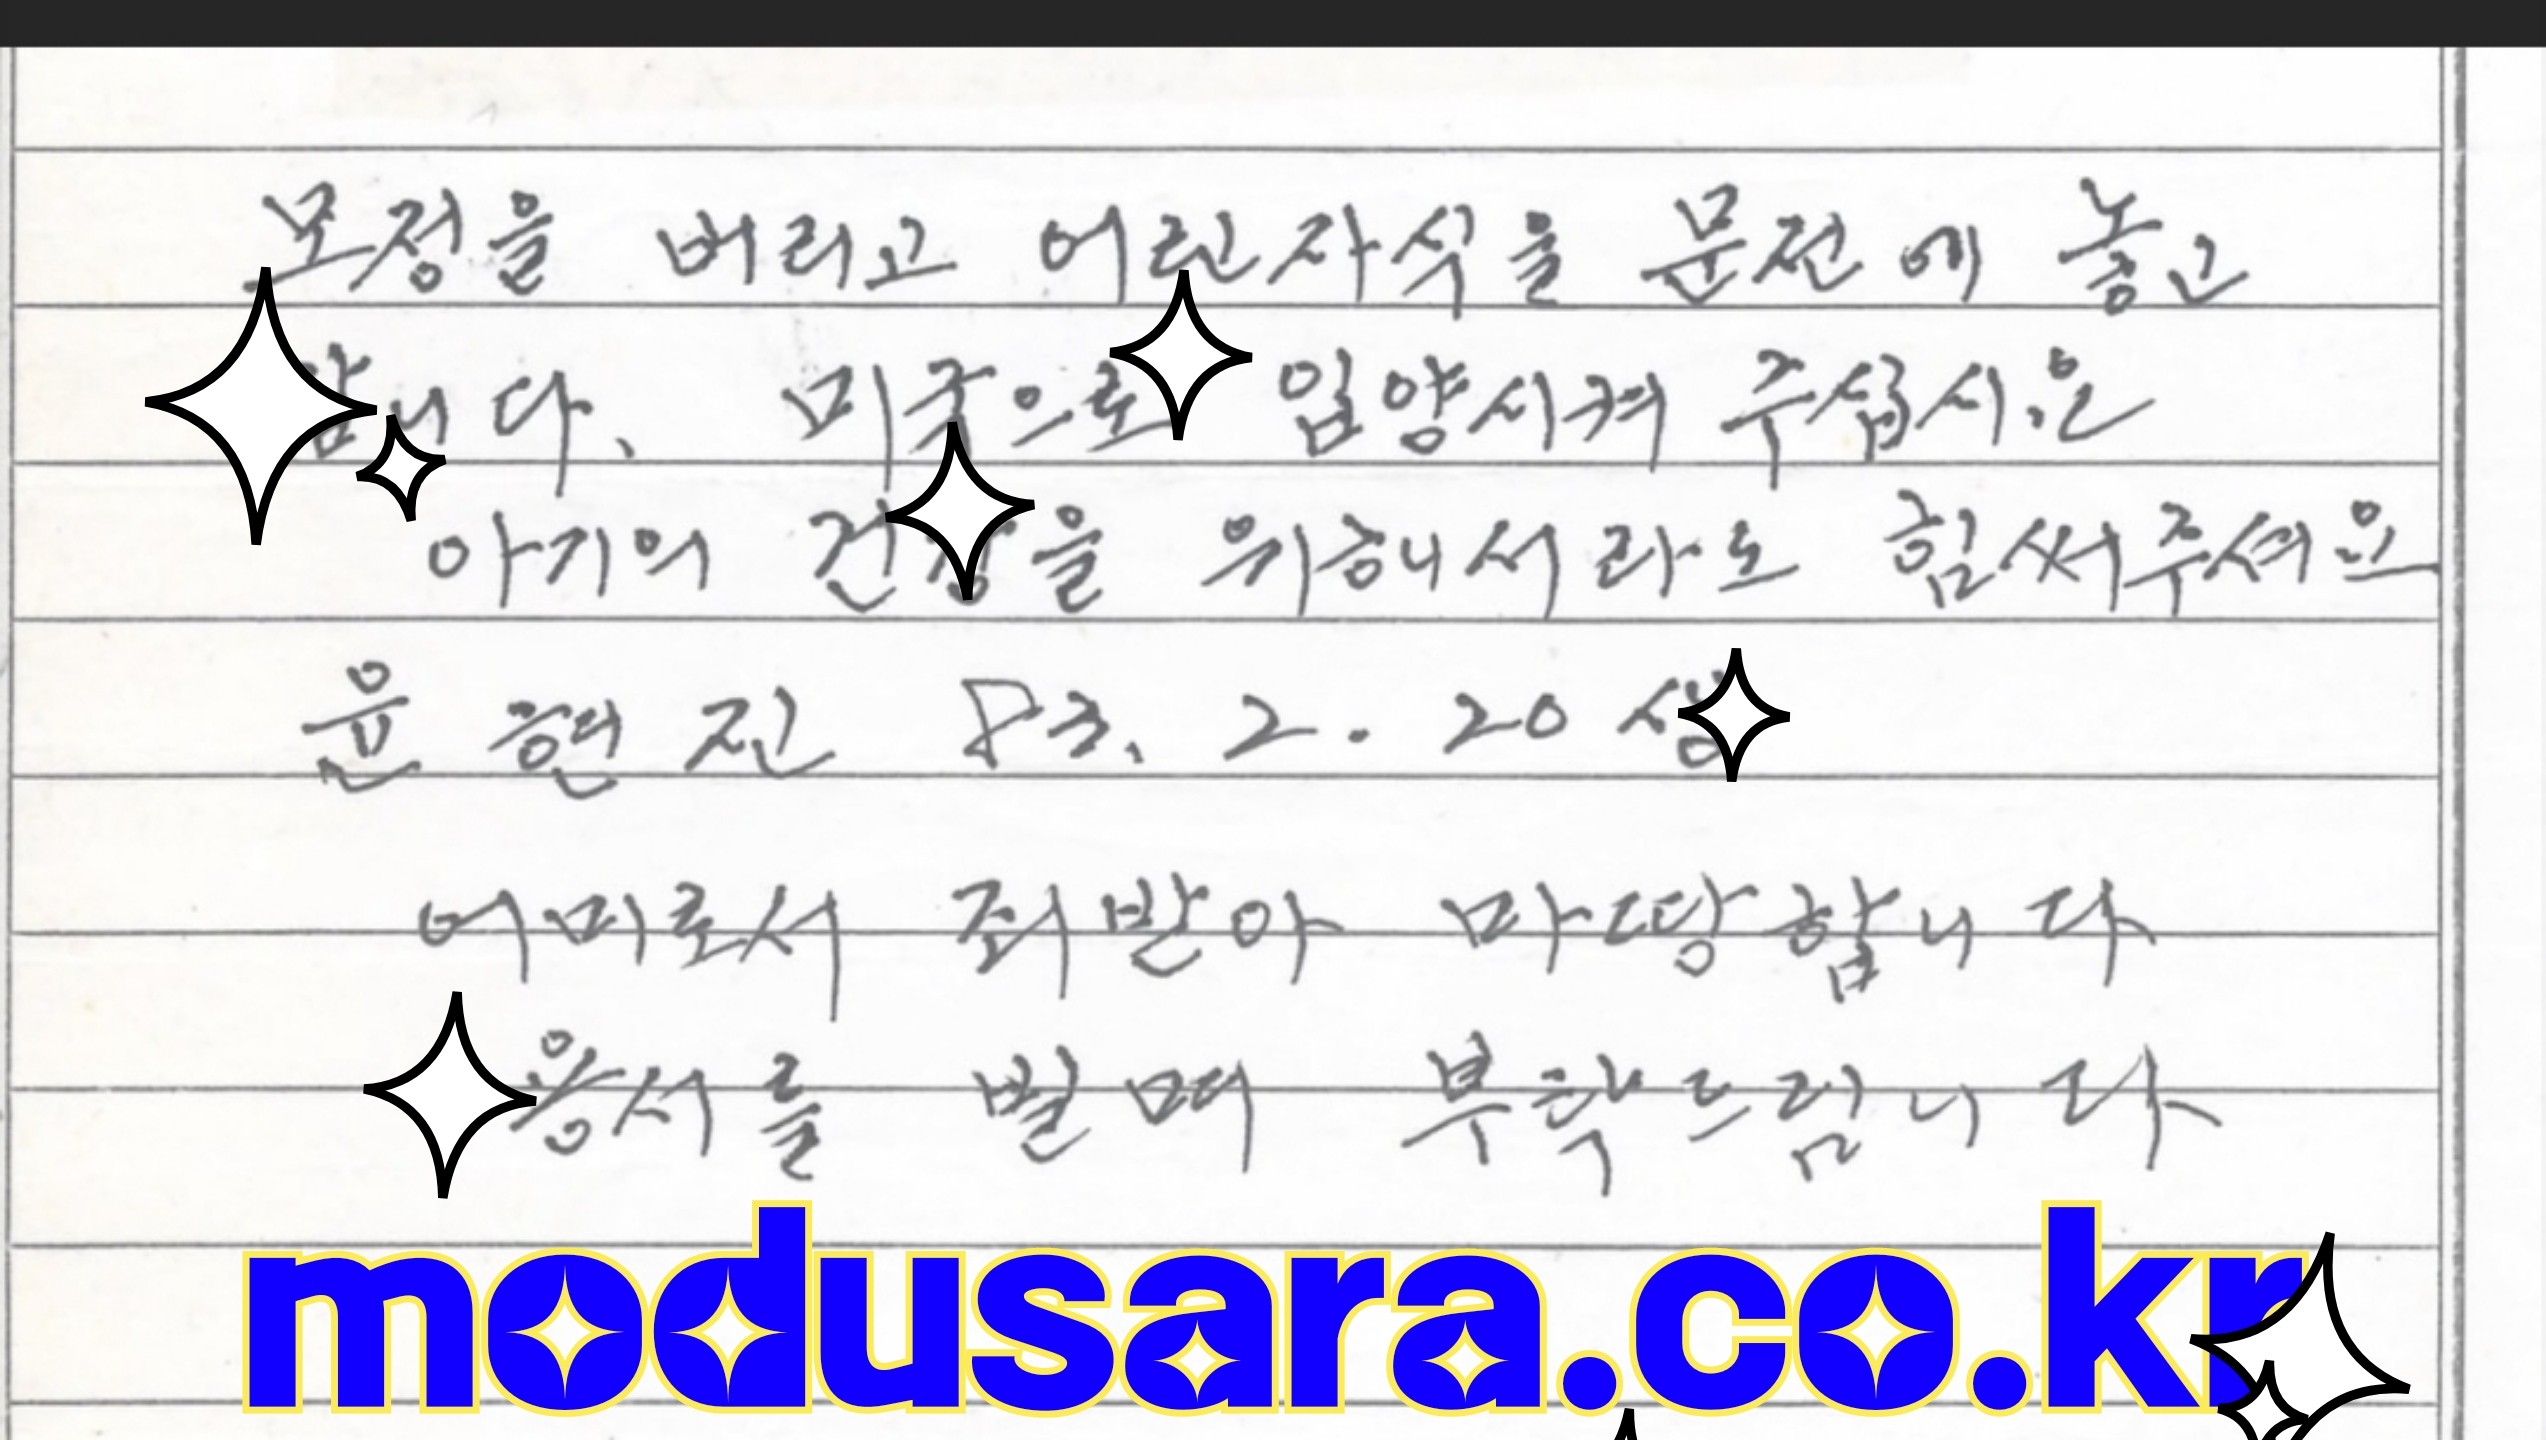 모정을 버리고 어린자식을 문전에 놓고
갑니다. 미국으로 입양시켜 주십시요
아기의 건강을 위해서라도 힘써주셔요
윤현진 83. 2. 20 생
어미로서 죄받아 마땅합니다
용서를 빌며 부탁드립니다
modusara.co.kr